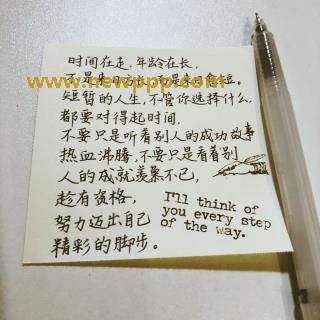 时间在走，年龄在长，
不是来日方长，而是来日方短。
www.newppp.com
短暂的人生，不管你选择什么，
都要对得起时间，
不要只是听着别人的成功故事
热血沸腾，不要只是看着别
人的成就羡慕不已，
趁有资格，
努力迈出自己
精彩的脚步。
I'll think of
you every step
of the way.